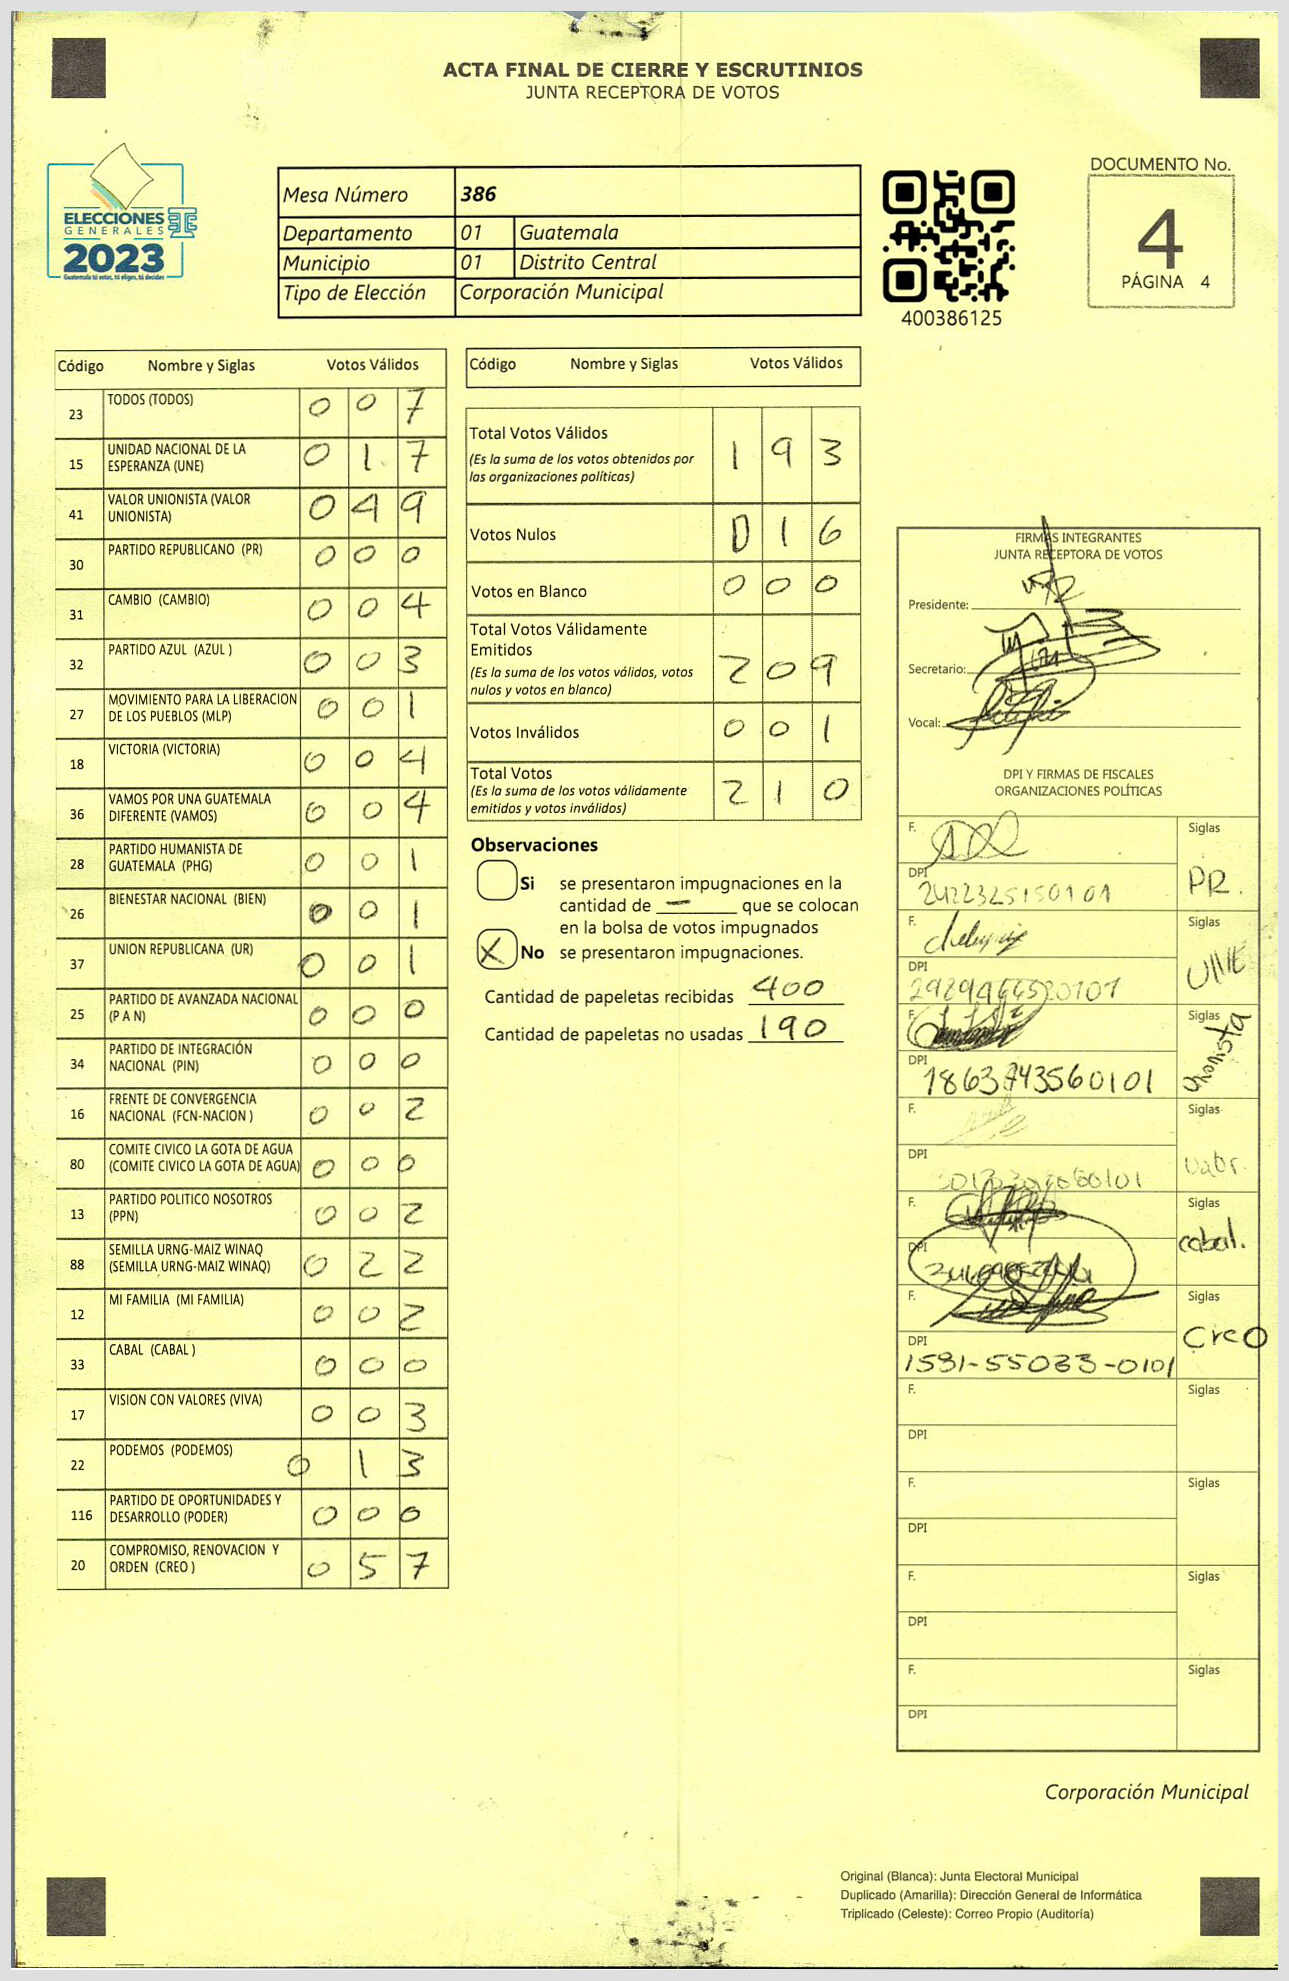 ACTA FINAL DE CIERRE Y ESCRUTINIOS
JUNTA RECEPTORA DE VOTOS
ELECCIONES
GENERALES
2023
Guatemala tú votas, tú eliges, tú decides
Mesa Número 386
Departamento 01 Guatemala
Municipio 01 Distrito Central
Tipo de Elección Corporación Municipal
400386125
DOCUMENTO No.
4
PÁGINA 4
Código Nombre y Siglas Votos Válidos
23 TODOS (TODOS) 0 0 7
15 UNIDAD NACIONAL DE LA ESPERANZA (UNE) 0 1 7
41 VALOR UNIONISTA (VALOR UNIONISTA) 0 4 9
30 PARTIDO REPUBLICANO (PR) 0 0 0
31 CAMBIO (CAMBIO) 0 0 4
32 PARTIDO AZUL (AZUL ) 0 0 3
27 MOVIMIENTO PARA LA LIBERACION DE LOS PUEBLOS (MLP) 0 0 1
18 VICTORIA (VICTORIA) 0 0 4
36 VAMOS POR UNA GUATEMALA DIFERENTE (VAMOS) 0 0 4
28 PARTIDO HUMANISTA DE GUATEMALA (PHG) 0 0 1
26 BIENESTAR NACIONAL (BIEN) 0 0 1
37 UNION REPUBLICANA (UR) 0 0 1
25 PARTIDO DE AVANZADA NACIONAL (P A N) 0 0 0
34 PARTIDO DE INTEGRACIÓN NACIONAL (PIN) 0 0 0
16 FRENTE DE CONVERGENCIA NACIONAL (FCN-NACION ) 0 0 2
80 COMITE CIVICO LA GOTA DE AGUA (COMITE CIVICO LA GOTA DE AGUA) 0 0 0
13 PARTIDO POLITICO NOSOTROS (PPN) 0 0 2
88 SEMILLA URNG-MAIZ WINAQ (SEMILLA URNG-MAIZ WINAQ) 0 2 2
12 MI FAMILIA (MI FAMILIA) 0 0 2
33 CABAL (CABAL ) 0 0 0
17 VISION CON VALORES (VIVA) 0 0 3
22 PODEMOS (PODEMOS) 0 1 3
116 PARTIDO DE OPORTUNIDADES Y DESARROLLO (PODER) 0 0 0
20 COMPROMISO, RENOVACION Y ORDEN (CREO ) 0 5 7
Código Nombre y Siglas Votos Válidos
Total Votos Válidos 1 9 3
(Es la suma de los votos obtenidos por
las organizaciones políticas)
Votos Nulos 0 1 6
Votos en Blanco 0 0 0
Total Votos Válidamente
Emitidos 2 0 9
(Es la suma de los votos válidos, votos
nulos y votos en blanco)
Votos Inválidos 0 0 1
Total Votos 2 1 0
(Es la suma de los votos válidamente
emitidos y votos inválidos)
Observaciones
Si se presentaron impugnaciones en la
cantidad de — que se colocan
en la bolsa de votos impugnados
X No se presentaron impugnaciones.
Cantidad de papeletas recibidas 400
Cantidad de papeletas no usadas 190
FIRMAS INTEGRANTES
JUNTA RECEPTORA DE VOTOS
Presidente:
Secretario:
Vocal:
DPI Y FIRMAS DE FISCALES
ORGANIZACIONES POLÍTICAS
F. Siglas
DPI 2422325150101 PR.
F. Siglas
DPI UNE
F. Siglas
DPI 1863743560101 Unionista
F. Siglas
DPI Valor.
F. Siglas
DPI cabal.
F. Siglas
DPI Creo
1591-55033-0101
F. Siglas
DPI
F. Siglas
DPI
F. Siglas
DPI
F. Siglas
DPI
Corporación Municipal
Original (Blanca): Junta Electoral Municipal
Duplicado (Amarilla): Dirección General de Informática
Triplicado (Celeste): Correo Propio (Auditoría)